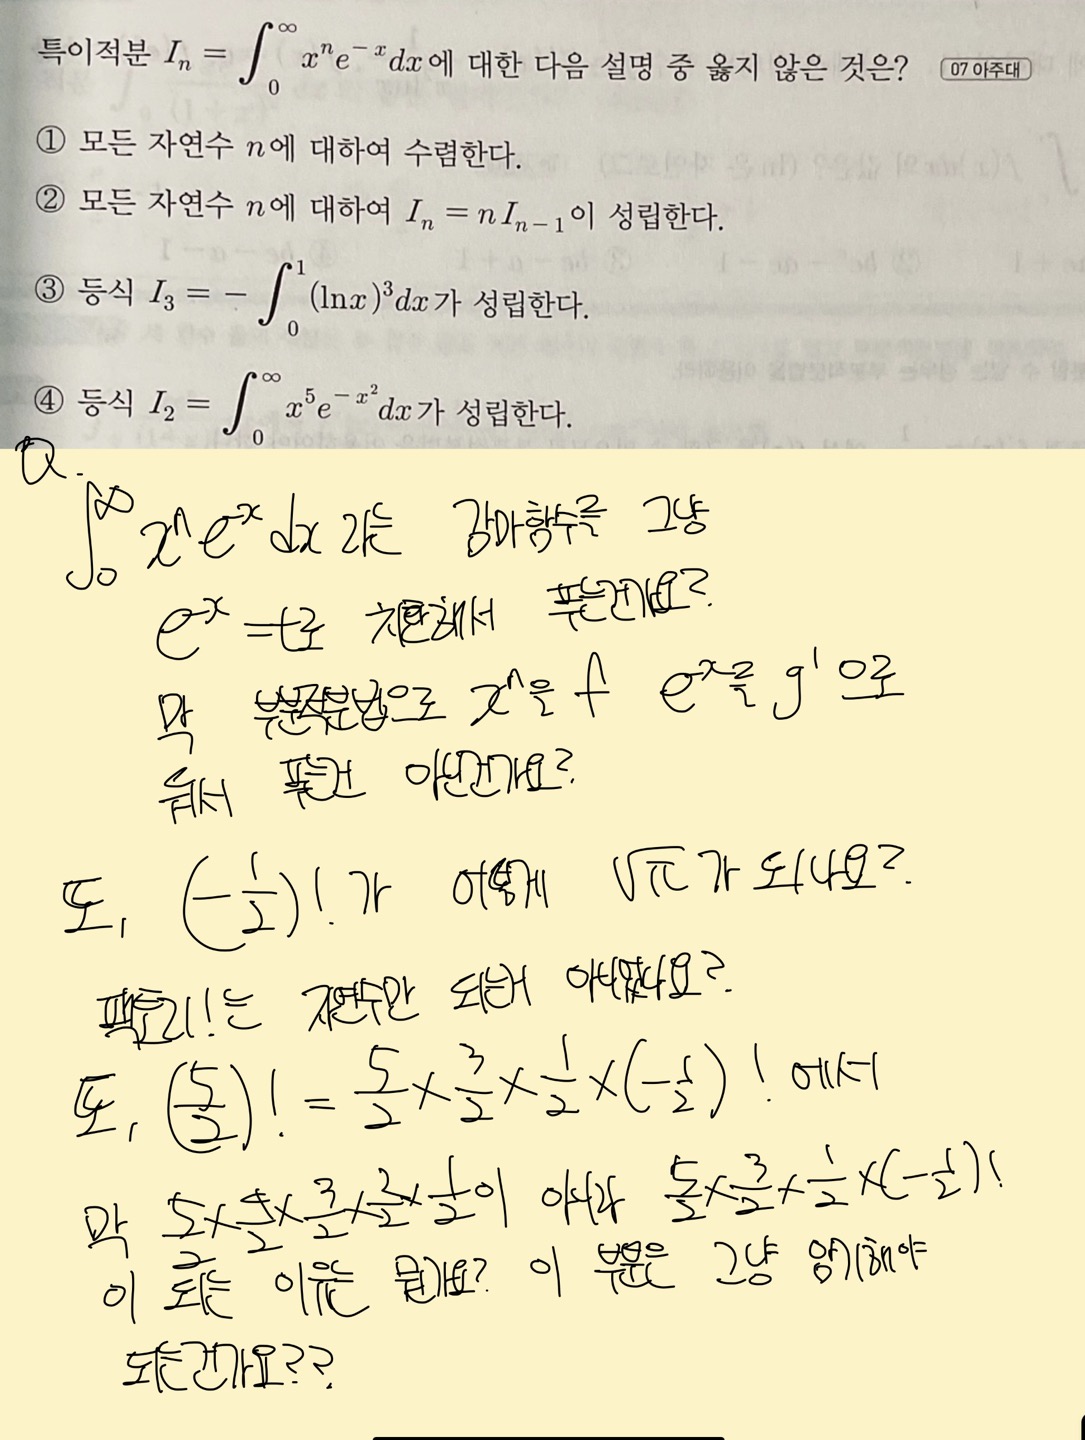 특이적분 Iₙ = ∫₀^∞ xⁿe⁻ˣdx에 대한 다음 설명 중 옳지 않은 것은? 07 아주대
① 모든 자연수 n에 대하여 수렴한다.
② 모든 자연수 n에 대하여 Iₙ = nIₙ₋₁이 성립한다.
③ 등식 I₃ = −∫₀¹(lnx)³dx가 성립한다.
④ 등식 I₂ = ∫₀^∞ x⁵e^(−x²)dx가 성립한다.
Q.
∫₀^∞ xⁿe⁻ˣdx 라는 감마함수를 그냥
e⁻ˣ=t로 치환해서 푸는건가요?
막 부분적분법으로 xⁿ을 f e⁻ˣ를 g'으로
둬서 푸는건 아닌건가요?
또, (−1/2)!가 어떻게 √π가 되나요?
팩토리!는 자연수만 되는거 아니었나요?
또, (5/2)! = 5/2×3/2×1/2×(−1/2)! 에서
막 5/2×4/2×3/2×2/2×1/2이 아니라 5/2×3/2×1/2×(−1/2)!
이 되는 이유는 뭔가요? 이 부분은 그냥 암기해야
되는건가요??